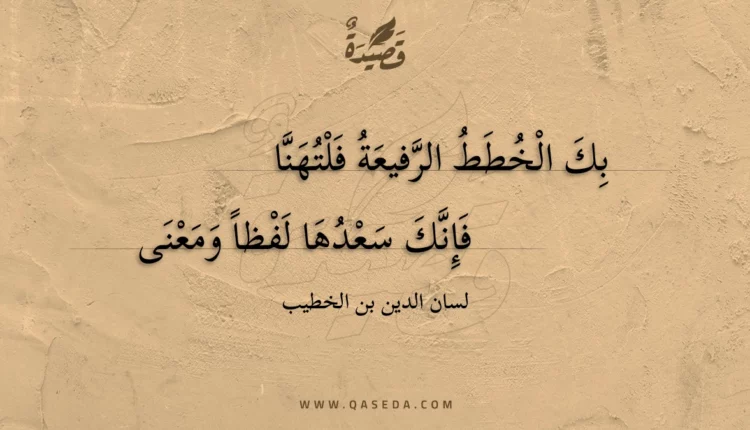 قَصِيدَةٌ
بِكَ الْخُطَطُ الرَّفيعَةُ فَلْتُهَنَّا
فَإِنَّكَ سَعْدُهَا لَفْظاً وَمَعْنَى
لسان الدين بن الخطيب
WWW.QASEDA.COM